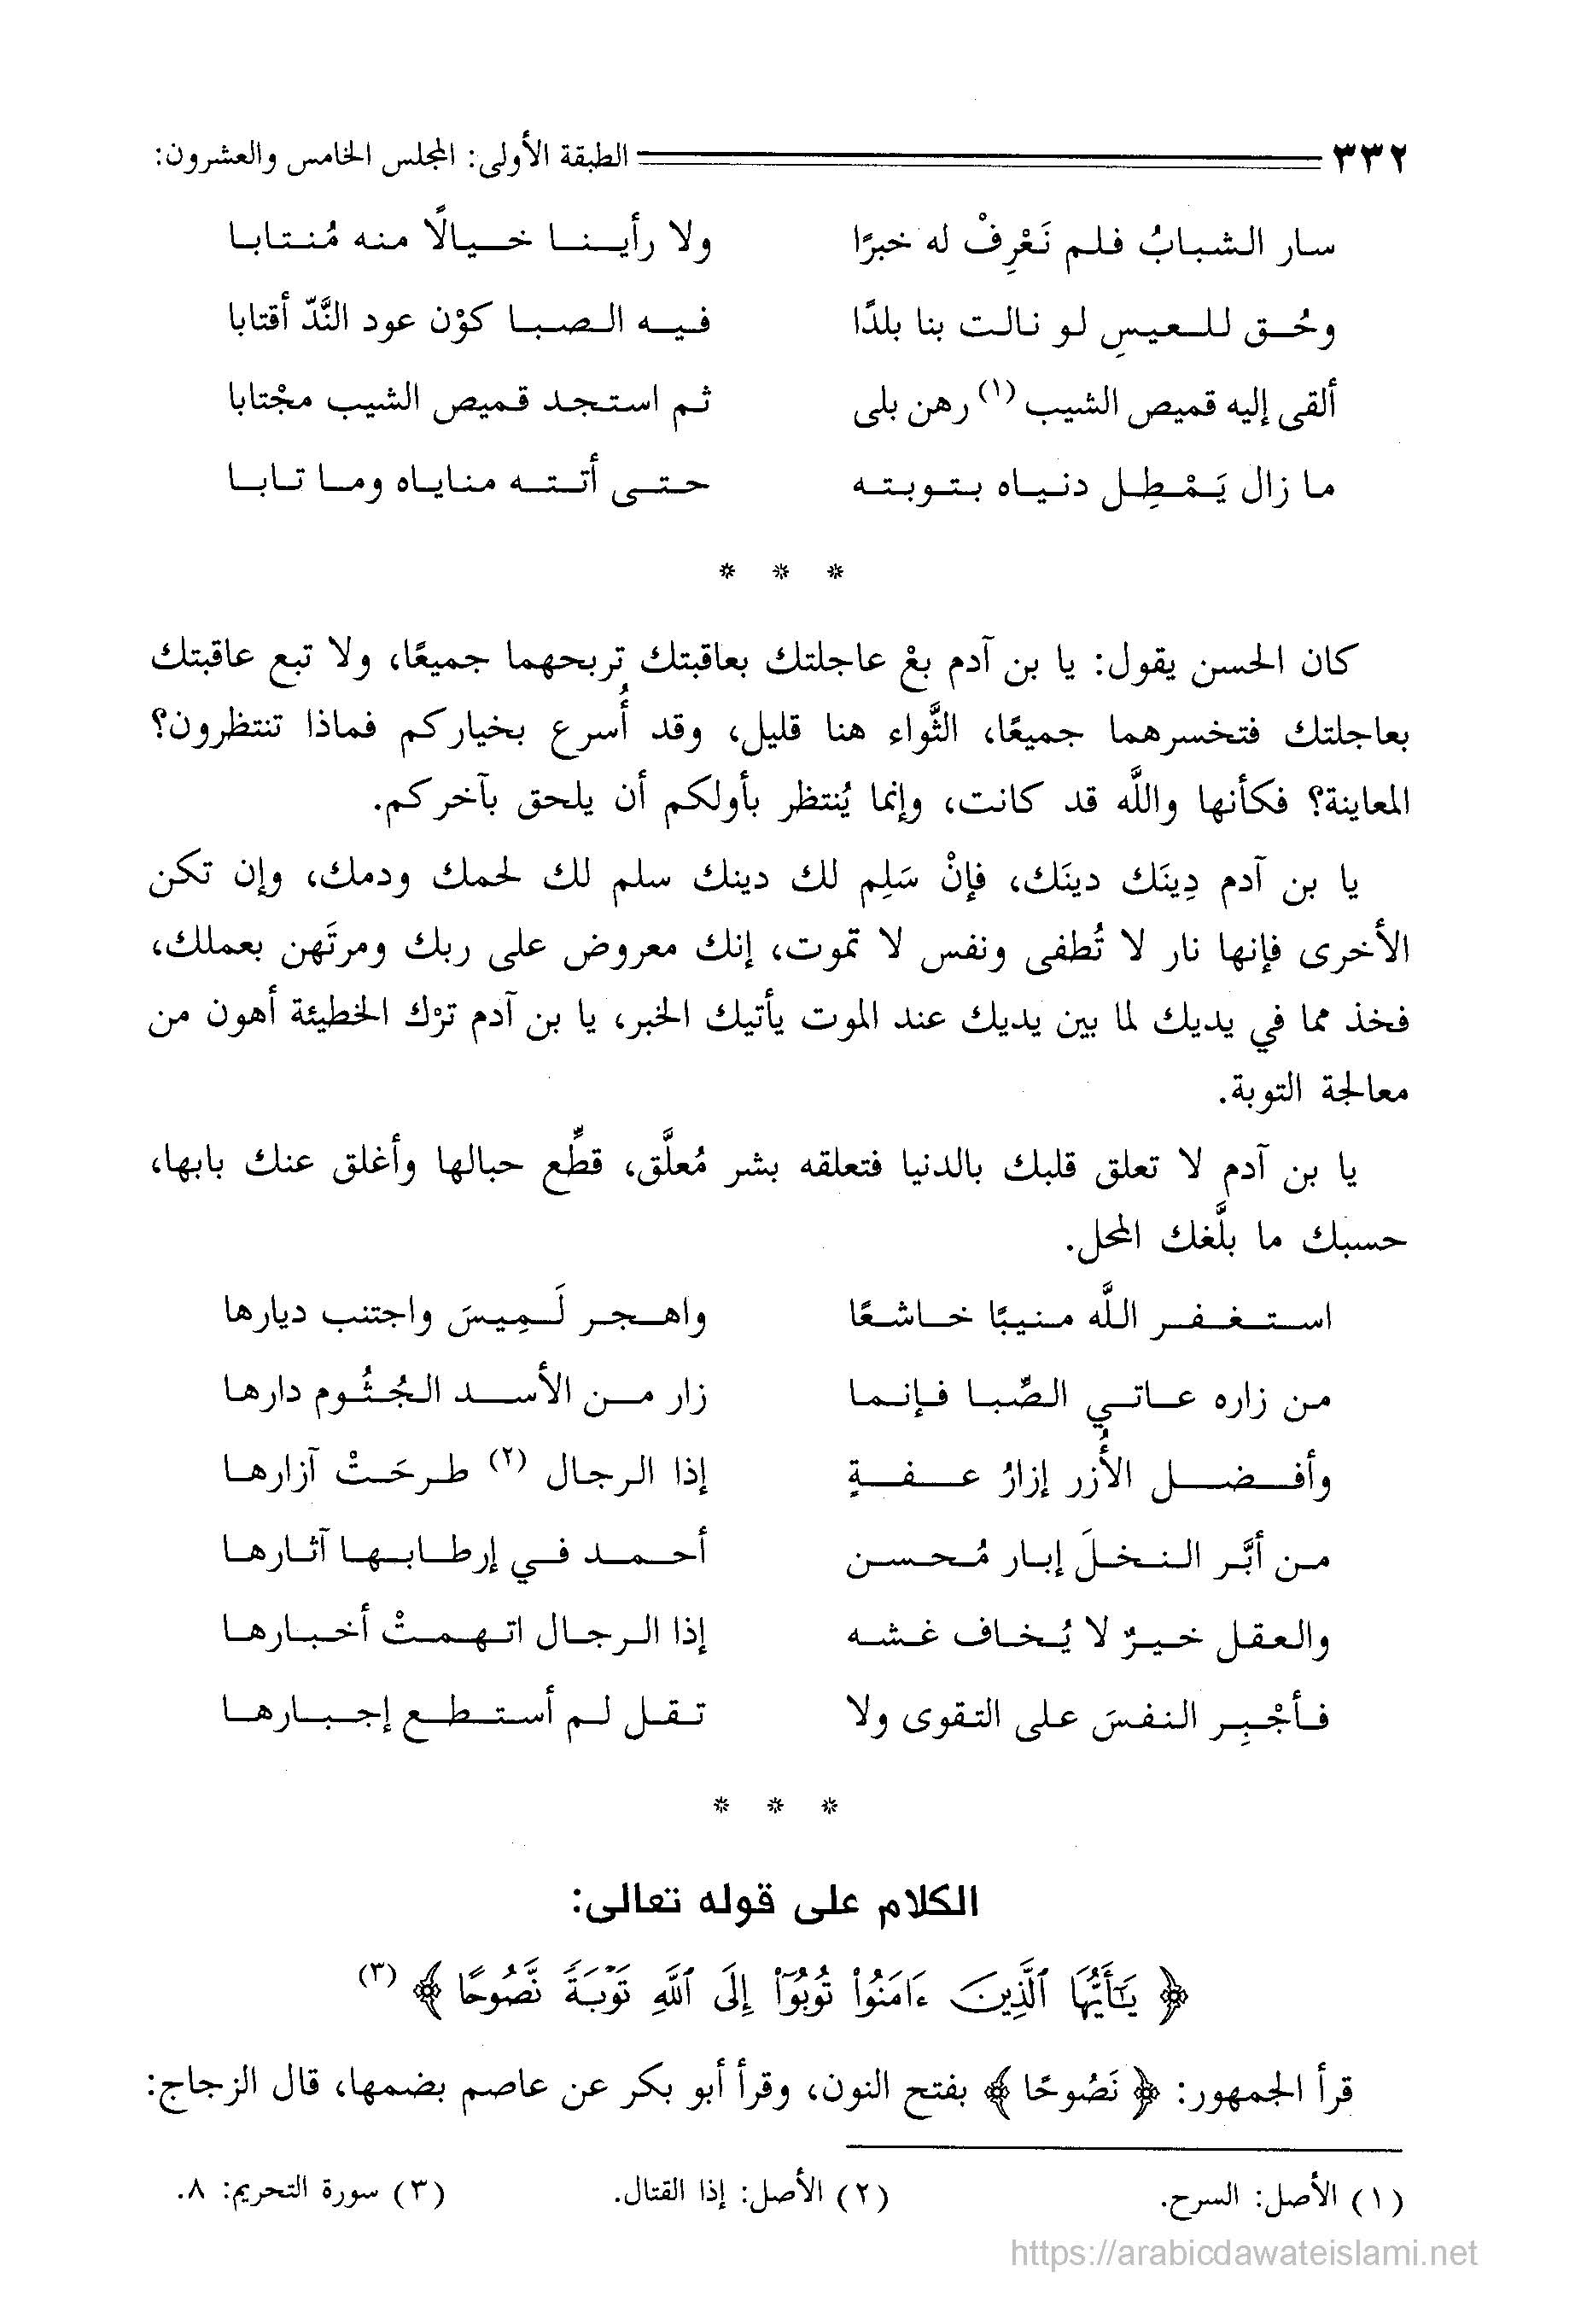 ٣٣٢ الطبقة الأولى: المجلس الخامس والعشرون:
سار الشبابُ فلم نَعْرِفْ له خبرًا ولا رأينا خيالًا منه مُنتابا
وحُق للعيسِ لو نالت بنا بلدًا فيه الصبا كوْن عود النَّدّ أقتابا
ألقى إليه قميص الشيب (١) رهن بلى ثم استجد قميص الشيب مجْتابا
ما زال يَمْطِل دنياه بتوبته حتى أتته مناياه وما تابا
* * *
كان الحسن يقول: يا بن آدم بعْ عاجلتك بعاقبتك تربحهما جميعًا، ولا تبع عاقبتك
بعاجلتك فتخسرهما جميعًا، الثَّواء هنا قليل، وقد أُسرع بخياركم فماذا تنتظرون؟
المعاينة؟ فكأنها واللَّه قد كانت، وإنما يُنتظر بأولكم أن يلحق بآخركم.
يا بن آدم دِينَك دينَك، فإنْ سَلِم لك دينك سلم لك لحمك ودمك، وإن تكن
الأخرى فإنها نار لا تُطفى ونفس لا تموت، إنك معروض على ربك ومرتَهن بعملك،
فخذ مما في يديك لما بين يديك عند الموت يأتيك الخبر، يا بن آدم ترْك الخطيئة أهون من
معالجة التوبة.
يا بن آدم لا تعلق قلبك بالدنيا فتعلقه بشر مُعلَّق، قطِّع حبالها وأغلق عنك بابها،
حسبك ما بلَّغك المحل.
استغفر اللَّه منيبًا خاشعًا واهجر لَمِيسَ واجتنب ديارها
من زاره عاتي الصِّبا فإنما زار من الأسد الجُثُوم دارها
وأفضل الأُزر إزارُ عفةٍ إذا الرجال (٢) طرحَتْ آزارها
من أبَّر النخلَ إبار مُحسن أحمد في إرطابها آثارها
والعقل خيرٌ لا يُخاف غشه إذا الرجال اتهمتْ أخبارها
فأجْبِر النفسَ على التقوى ولا تقل لم أستطع إجبارها
* * *
الكلام على قوله تعالى:
﴿ يَٰٓأَيُّهَا ٱلَّذِينَ ءَامَنُوا۟ تُوبُوٓا۟ إِلَى ٱللَّهِ تَوْبَةً نَّصُوحًا ﴾ (٣)
قرأ الجمهور: ﴿ نَصُوحًا ﴾ بفتح النون، وقرأ أبو بكر عن عاصم بضمها، قال الزجاج:
(١) الأصل: السرح. (٢) الأصل: إذا القتال. (٣) سورة التحريم: ٨.
https://arabicdawateislami.net